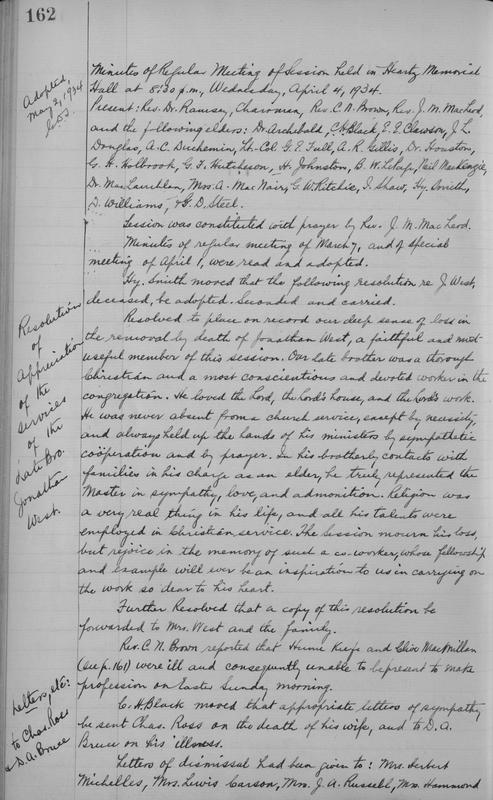 162
Adopted,
May 2, 1934
Minutes of Regular Meeting of Session held in Heartz Memorial
Hall at 8:30 p.m., Wednesday, April 4, 1934.
Present: Rev. Dr. Ramsay, Chairman, Rev. C. N. Brown, Rev. J. M. MacLeod,
and the following elders: Dr. Archibald, C. H. Black, E. E. Clawson, J. L.
Douglas, A. C. Duchemin, Lt-Col G. E. Full, A. R. Gillis, Dr. Houston,
G. H. Holbrook, G. F. Hutcheson, H. Johnston, B. W. LePage, Neil MacKenzie,
Dr. MacLauchlan, Mrs. A. MacNair, G. W. Ritchie, I. Shaw, Hy. Smith,
D. Williams, & G. D. Steel.
Session was constituted with prayer by Rev. J. M. MacLeod.
Minutes of regular meeting of March 7, and of special
meeting of April 1, were read and adopted.
Hy. Smith moved that the following resolution re J. West,
deceased, be adopted. Seconded and carried.
Resolution
of
Appreciation
of the
services
of the
Late Bro.
Jonathan
West.
Resolved to place on record our deep sense of loss in
the removal by death of Jonathan West, a faithful and most
useful member of this session. Our late brother was a thorough
Christian and a most conscientious and devoted worker in the
congregation. He loved the Lord, the Lord's house, and the Lord's work.
He was never absent from a church service, except by necessity,
and always held up the hands of his ministers by sympathetic
coöperation and by prayer. In his brotherly contacts with
families in his charge as an elder, he truly represented the
Master in sympathy, love, and admonition. Religion was
a very real thing in his life, and all his talents were
employed in Christian service. The Session mourn his loss,
but rejoice in the memory of such a co-worker, whose fellowship
and example will ever be an inspiration to us in carrying on
the work so dear to his heart.
Further Resolved that a copy of this resolution be
forwarded to Mrs. West and the family.
Rev. C. N. Brown reported that Keefe and MacMillan
(see p. 161) were ill and consequently unable to be present to make
profession on Easter Sunday morning.
Letters, etc:
to Chas. Ross
& D. A. Bruce
C. H. Black moved that appropriate letters of sympathy
be sent Chas. Ross on the death of his wife, and to D. A.
Bruce on his illness.
Letters of dismissal had been given to: Mrs. Herbert
Michelles, Mrs. Lewis Carson, Mrs. J. A. Russell, Mrs. Hammond